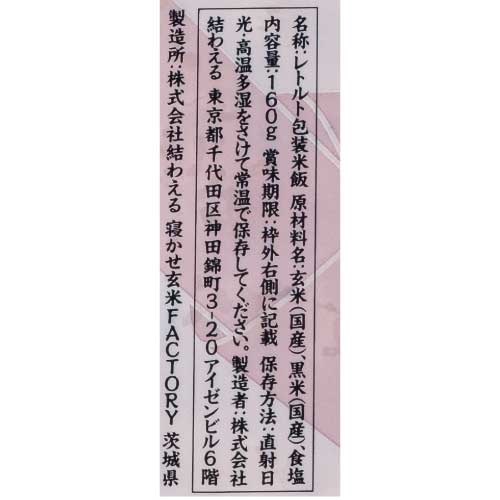 名称:レトルト包装米飯 原材料名:玄米(国産)、黒米(国産)、食塩
内容量:160g 賞味期限:枠外右側に記載 保存方法:直射日
光・高温多湿をさけて常温で保存してください。製造者:株式会社
結わえる 東京都千代田区神田錦町3-20アイゼンビル6階
製造所:株式会社結わえる 寝かせ玄米FACTORY 茨城県